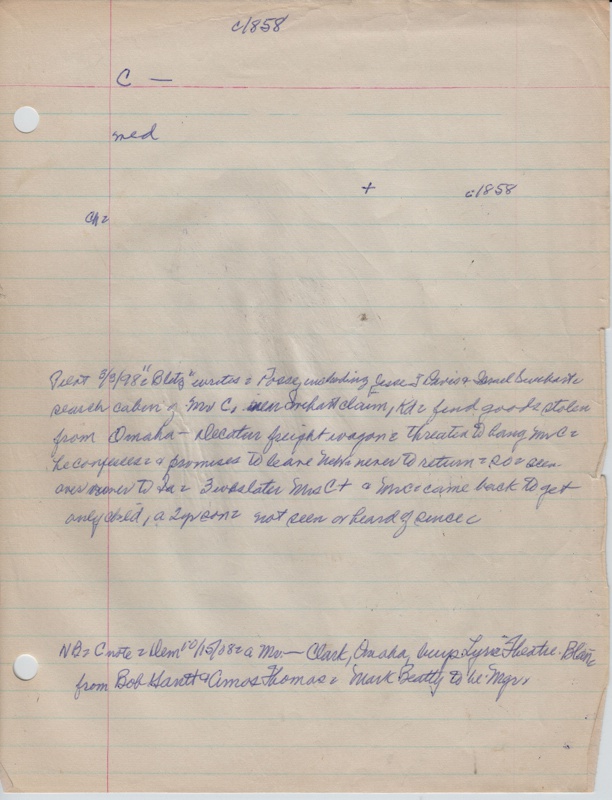 c/1858
C —
med
+ c/1858
Ch =
Pilot 3/3/98 "Bltz" writes = Posse, including Jesse T Davis &
search cabin of Mr C, near claim, & find goods stolen
from Omaha – Decatur freight wagon = threaten to hang Mr C =
he confesses = & promises to leave Neb = never to return = so = seen
over river to Ia = 3 wks later Mrs C + a Mr C = came back to get
only child, a 2 yr son = not seen or heard of since
NB = C note = Dem 10/15/08 = a Mr. — Clark, Omaha, buys Lyric Theatre Blair
from Bob & Amos Thomas = Mark Beatty to be Mgr.